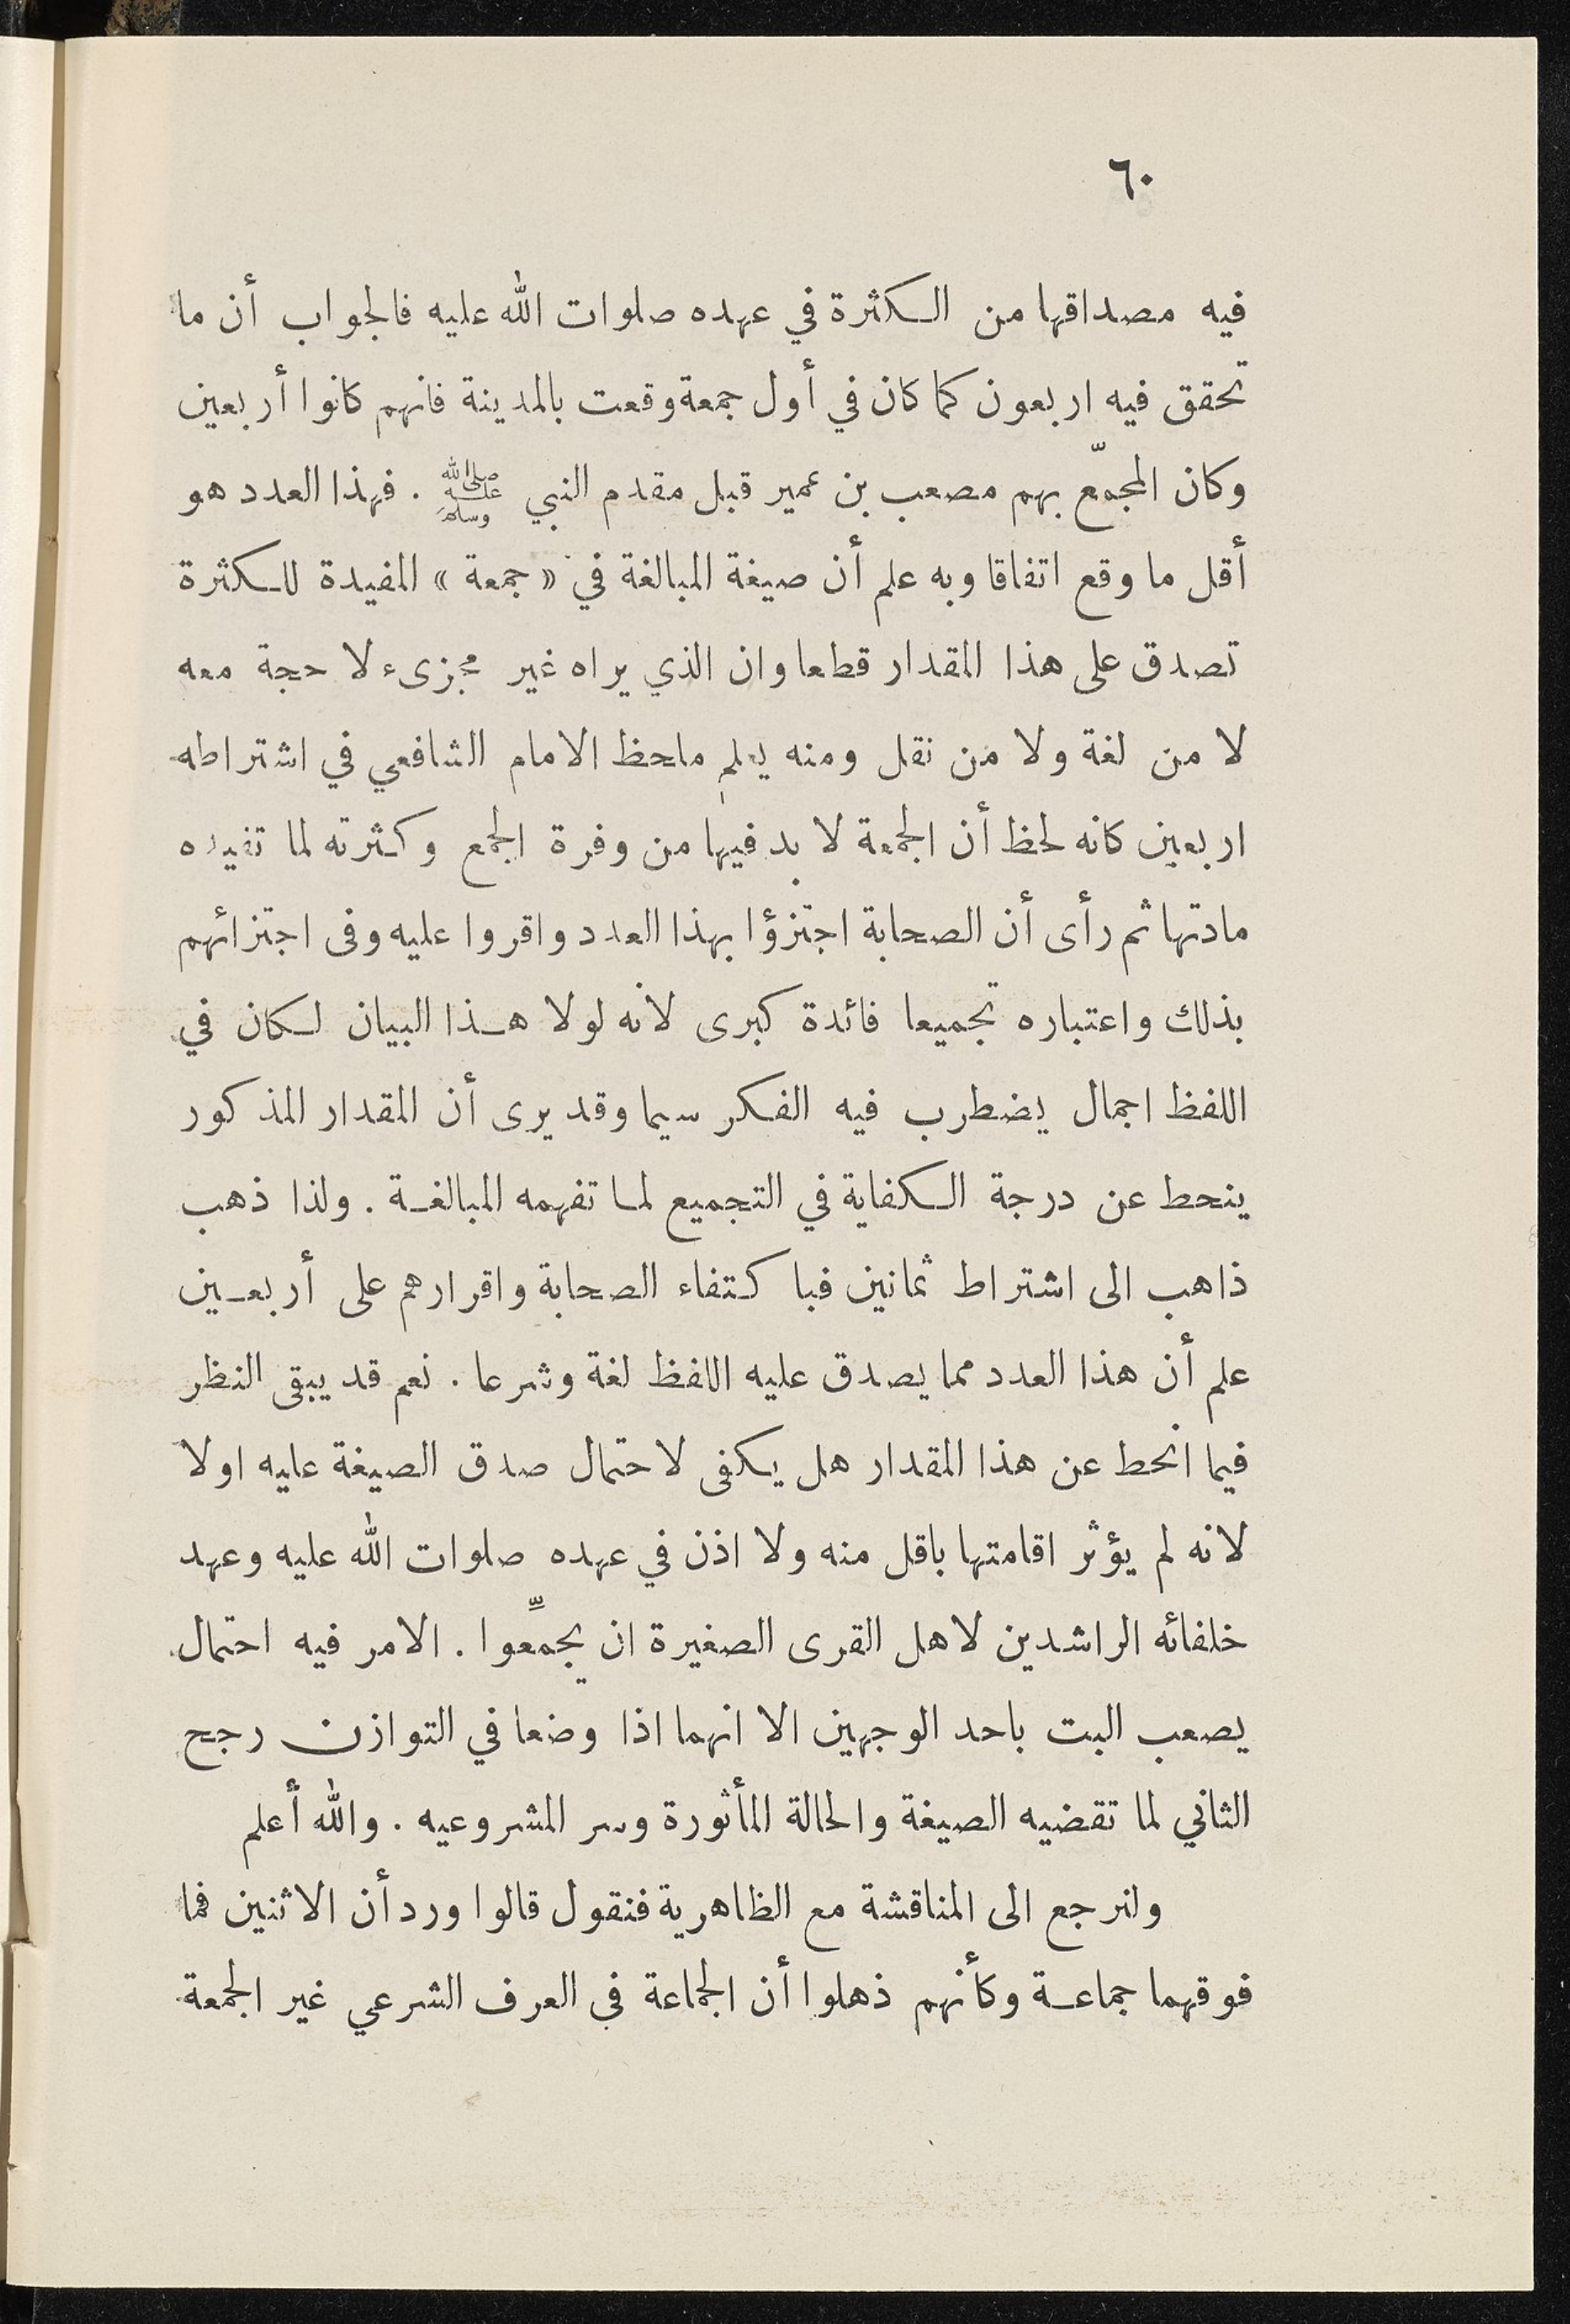 ٦٠
فيه مصداقها من الكثرة في عهده صلوات الله عليه فالجواب أن ما
تحقق فيه اربعون كما كان في أول جمعة وقعت بالمدينة فانهم كانوا أربعين
وكان المجمّع بهم مصعب بن عمير قبل مقدم النبي ﷺ . فهذا العدد هو
أقل ما وقع اتفاقا وبه علم أن صيغة المبالغة في «جمعة» المفيدة للكثرة
تصدق على هذا المقدار قطعا وان الذي يراه غير مجزىء لا حجة معه
لا من لغة ولا من نقل ومنه يعلم ملحظ الامام الشافعي في اشتراطه
اربعين كانه لحظ أن الجمعة لا بد فيها من وفرة الجمع وكثرته لما تفيده
مادتها ثم رأى أن الصحابة اجتزؤا بهذا العدد واقروا عليه وفى اجتزائهم
بذلك واعتباره تجميعا فائدة كبرى لانه لولا هذا البيان لكان في
اللفظ اجمال يضطرب فيه الفكر سيما وقد يرى أن المقدار المذكور
ينحط عن درجة الكفاية في التجميع لما تفهمه المبالغة . ولذا ذهب
ذاهب الى اشتراط ثمانين فباكتفاء الصحابة واقرارهم على أربعين
علم أن هذا العدد مما يصدق عليه اللفظ لغة وشرعا . نعم قد يبقى النظر
فيما انحط عن هذا المقدار هل يكفى لاحتمال صدق الصيغة عليه اولا
لانه لم يؤثر اقامتها باقل منه ولا اذن في عهده صلوات الله عليه وعهد
خلفائه الراشدين لاهل القرى الصغيرة ان يجمِّعوا . الامر فيه احتمال
يصعب البت باحد الوجهين الا انهما اذا وضعا في التوازن رجح
الثاني لما تقضيه الصيغة والحالة المأثورة وسر المشروعيه . والله أعلم
ولنرجع الى المناقشة مع الظاهرية فنقول قالوا ورد أن الاثنين فما
فوقهما جماعة وكأنهم ذهلوا أن الجماعة في العرف الشرعي غير الجمعة